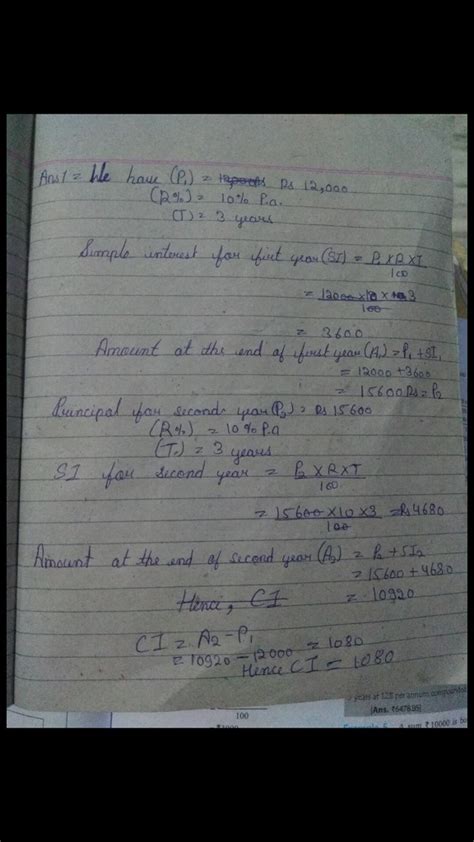 Ans1 = We have (P1) = Rs 12,000
(R%) = 10% P.a.
(T) = 3 years
Simple interest for first year (SI) = P1 X R X T
100
= 12000 X 10 X 3
100
= 3600
Amount at the end of first year (A1) = P1 + SI1
= 12000 + 3600
= 15600 Rs = P2
Principal for second year (P2) = Rs 15600
(R%) = 10% P.a
(T) = 3 years
SI for second year = P2 X R X T
100
= 15600 X 10 X 3 = Rs 4680
100
Amount at the end of second year (A2) = P2 + SI2
= 15600 + 4680
= 10920
Hence, CI
CI = A2 - P1
= 10920 - 12000 = 1080
Hence CI = 1080
years at 12% per annum compounded
100
[Ans. ₹6478.95]
A sum ₹10000 is